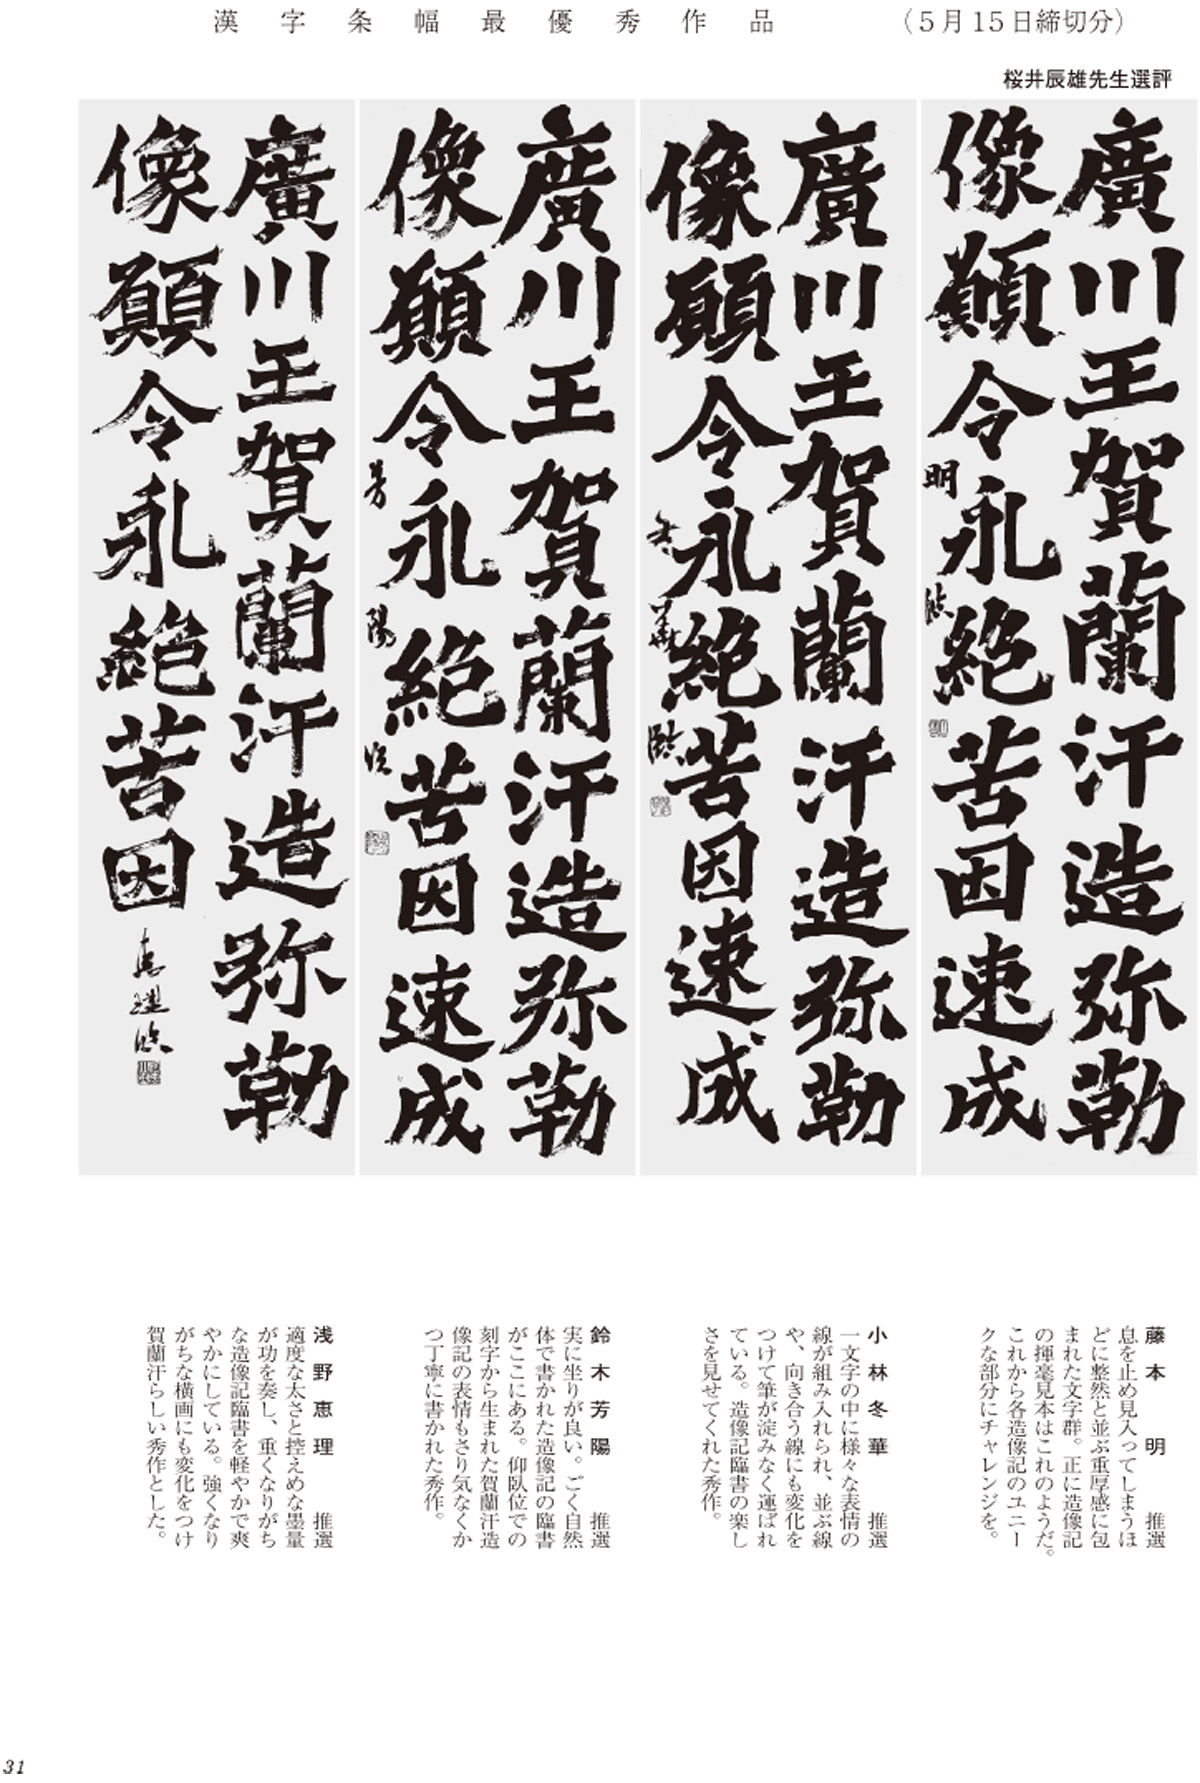 漢字条幅最優秀作品 （５月15日締切分）
桜井辰雄先生選評
廣川王賀蘭汗造弥勒
像願令永絶苦因速成
明臨
廣川王賀蘭汗造弥勒
像願令永絶苦因速成
冬華臨
廣川王賀蘭汗造弥勒
像願令永絶苦因速成
芳陽臨
廣川王賀蘭汗造弥勒
像願令永絶苦因
恵理臨
藤本　明　推選
息を止め見入ってしまうほ
どに整然と並ぶ重厚感に包
まれた文字群。正に造像記
の揮毫見本はこれのようだ。
これから各造像記のユニー
クな部分にチャレンジを。
小林冬華　推選
一文字の中に様々な表情の
線が組み入れられ、並ぶ線
や、向き合う線にも変化を
つけて筆が淀みなく運ばれ
ている。造像記臨書の楽し
さを見せてくれた秀作。
鈴木芳陽　推選
実に坐りが良い。ごく自然
体で書かれた造像記の臨書
がここにある。仰臥位での
刻字から生まれた賀蘭汗造
像記の表情もさり気なくか
つ丁寧に書かれた秀作。
浅野恵理　推選
適度な太さと控えめな墨量
が功を奏し、重くなりがち
な造像記臨書を軽やかで爽
やかにしている。強くなり
がちな横画にも変化をつけ
賀蘭汗らしい秀作とした。
31